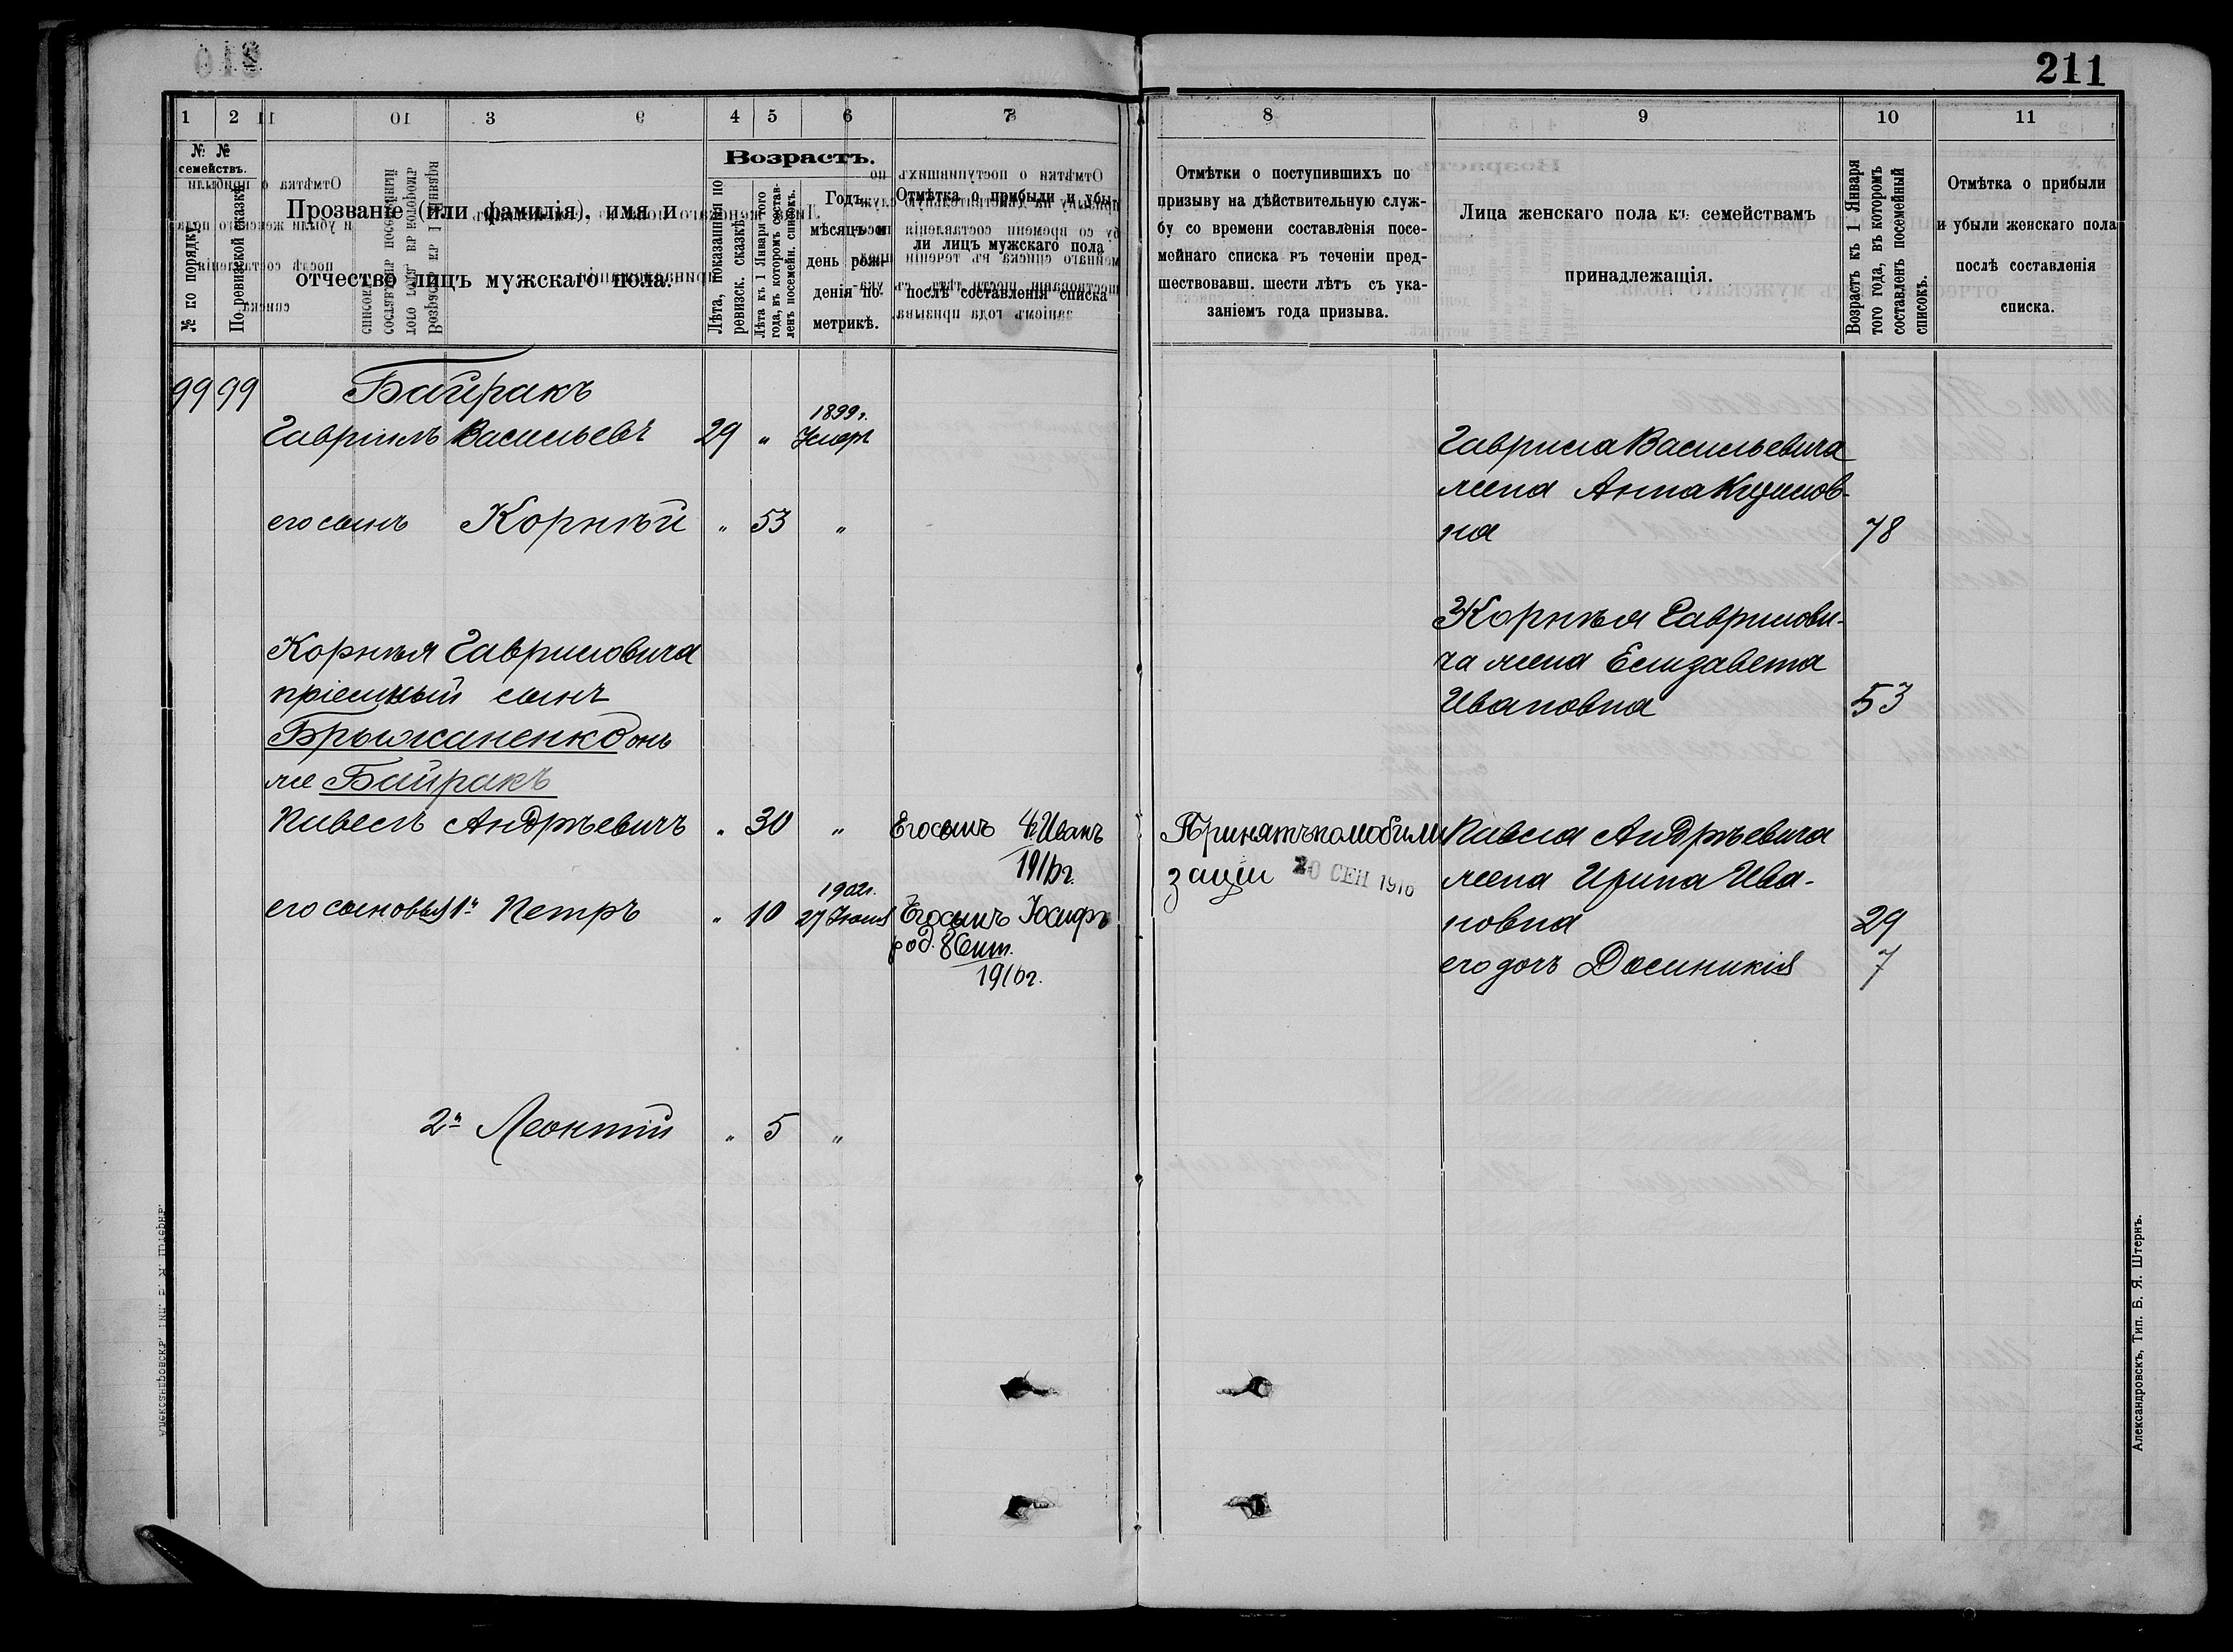 211
1 2 3 4 5 6 7
№ №
семействъ.
№ по порядку.
По ревизской сказкѣ.
Прозваніе (или фамилія), имя и
отчество лицъ мужскаго пола.
Возрастъ.
Лѣта, показанныя по
ревизск. сказкѣ.
Лѣта къ 1 Января того
года, въ которомъ состав-
ленъ посемейн. списокъ.
Годъ,
мѣсяцъ и
день рож-
денія по
метрикѣ.
Отмѣтка о прибыли и убы-
ли лицъ мужскаго пола
послѣ составленія списка
99 99 Байракъ
Гавріилъ Васильевъ 29 „ 1899 г.
Умеръ
его сынъ Корнѣй „ 53 „
Корнѣя Гавриловича
пріемный сынъ
Брыжаненко онъ
же Байракъ
Павелъ Андрѣевичъ „ 30 „ Его сынъ Иванъ
1916г.
1902г.
его сыновья 1й Петръ „ 10 27 Іюня Его сынъ Іосифъ
род. 8 Сент.
1916г.
2й Леонтій „ 5 „
8 9 10 11
Отмѣтки о поступившихъ по
призыву на дѣйствительную служ-
бу со времени составленія посе-
мейнаго списка въ теченіи пред-
шествовавш. шести лѣтъ съ ука-
заніемъ года призыва.
Лица женскаго пола къ семействамъ
принадлежащія.
Возрастъ къ 1 Января
того года, въ которомъ
составленъ посемейный
списокъ.
Отмѣтка о прибыли
и убыли женскаго пола
послѣ составленія
списка.
Гаврила Васильевича
жена Анна
на 78
Корнѣя Гаврилови-
ча жена Елизавета
Ивановна 53
Принятъ по мобили Павла Андрѣевича
заціи 20 СЕН 1916 жена Ирина Ива-
новна 29
его дочь Досиникія 7
Александровскъ, Тип. Б. Я. Штернъ.